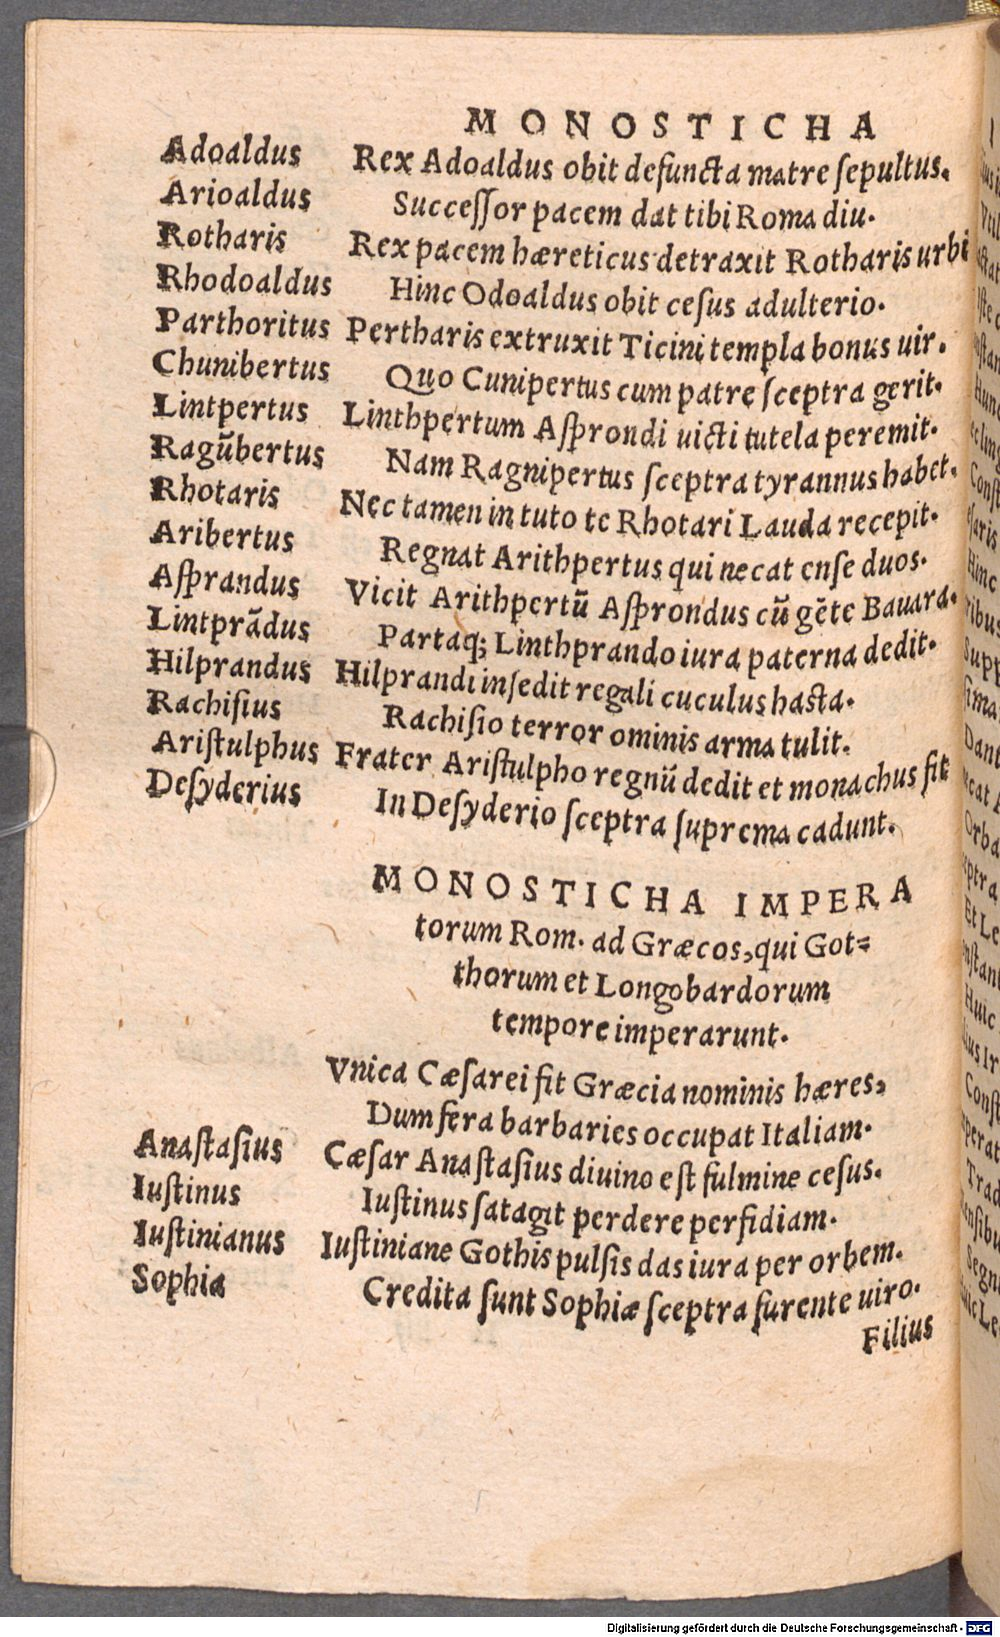 MONOSTICHA
Adoaldus Rex Adoaldus obit defuncta matre ſepultus.
Arioaldus Succeſſor pacem dat tibi Roma diu.
Rotharis Rex pacem hæreticus detraxit Rotharis urbi
Rhodoaldus Hinc Odoaldus obit ceſus adulterio.
Parthoritus Pertharis extruxit Ticini templa bonus uir.
Chunibertus Quo Cunipertus cum patre ſceptra gerit.
Lintpertus Linthpertum Aſprondi uicti tutela peremit.
Ragūbertus Nam Ragnipertus ſceptra tyrannus habet.
Rhotaris Nec tamen in tuto te Rhotari Lauda recepit.
Aribertus Regnat Arithpertus qui necat enſe duos.
Aſprandus Vicit Arithpertū Aſprondus cū gēte Bauara.
Lintprādus Partaq; Linthprando iura paterna dedit.
Hilprandus Hilprandi inſedit regali cuculus haſta.
Rachiſius Rachiſio terror ominis arma tulit.
Ariſtulphus Frater Ariſtulpho regnū dedit et monachus fit
Deſyderius In Deſyderio ſceptra ſuprema cadunt.
MONOSTICHA IMPERA
torum Rom. ad Græcos, qui Got=
thorum et Longobardorum
tempore imperarunt.
Vnica Cæſarei fit Græcia nominis hæres,
Dum fera barbaries occupat Italiam.
Anaſtaſius Cæſar Anaſtaſius diuino eſt fulmine ceſus.
Iuſtinus Iuſtinus ſatagit perdere perfidiam.
Iuſtinianus Iuſtiniane Gothis pulſis das iura per orbem.
Sophia Credita ſunt Sophiæ ſceptra furente uiro.
Filius
Digitalisierung gefördert durch die Deutsche Forschungsgemeinschaft - DFG